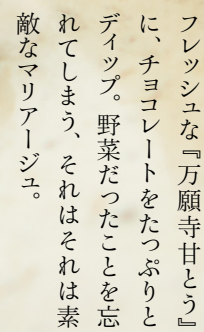 フレッシュな『万願寺甘とう』
に、チョコレートをたっぷりと
ディップ。野菜だったことを忘
れてしまう、それはそれは素
敵なマリアージュ。